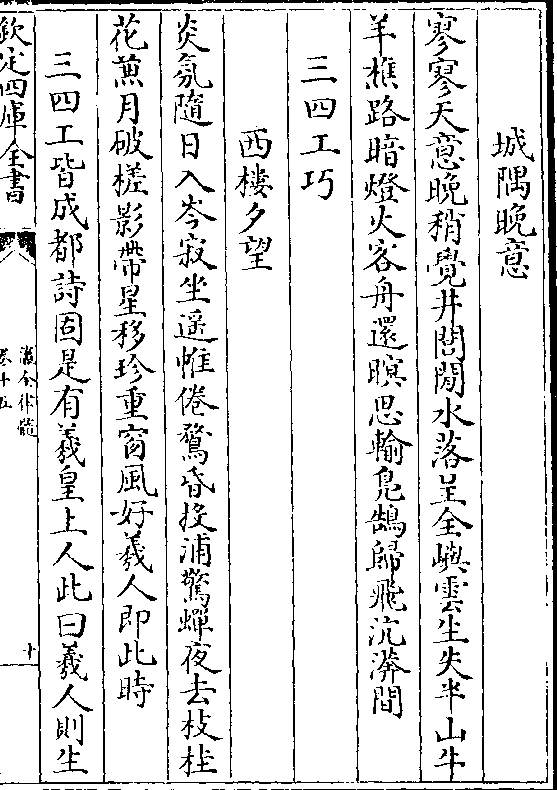 城隅晚意
寥寥天意晚稍覺井閭閒水落呈全嶼雲生失半山牛
羊樵路暗燈火客舟還暝思輸鳧鵠歸飛沆漭間
三四工巧
西樓夕望
炎氛隨日入岑寂坐遥帷倦鶩昏投浦驚蟬夜去枝桂
花煎月破槎影帶星移珍重窗風好羲人即此時
三四工皆成都詩固是有羲皇上人此曰羲人則生
欽定四庫全書
瀛奎律髓
卷十五
十